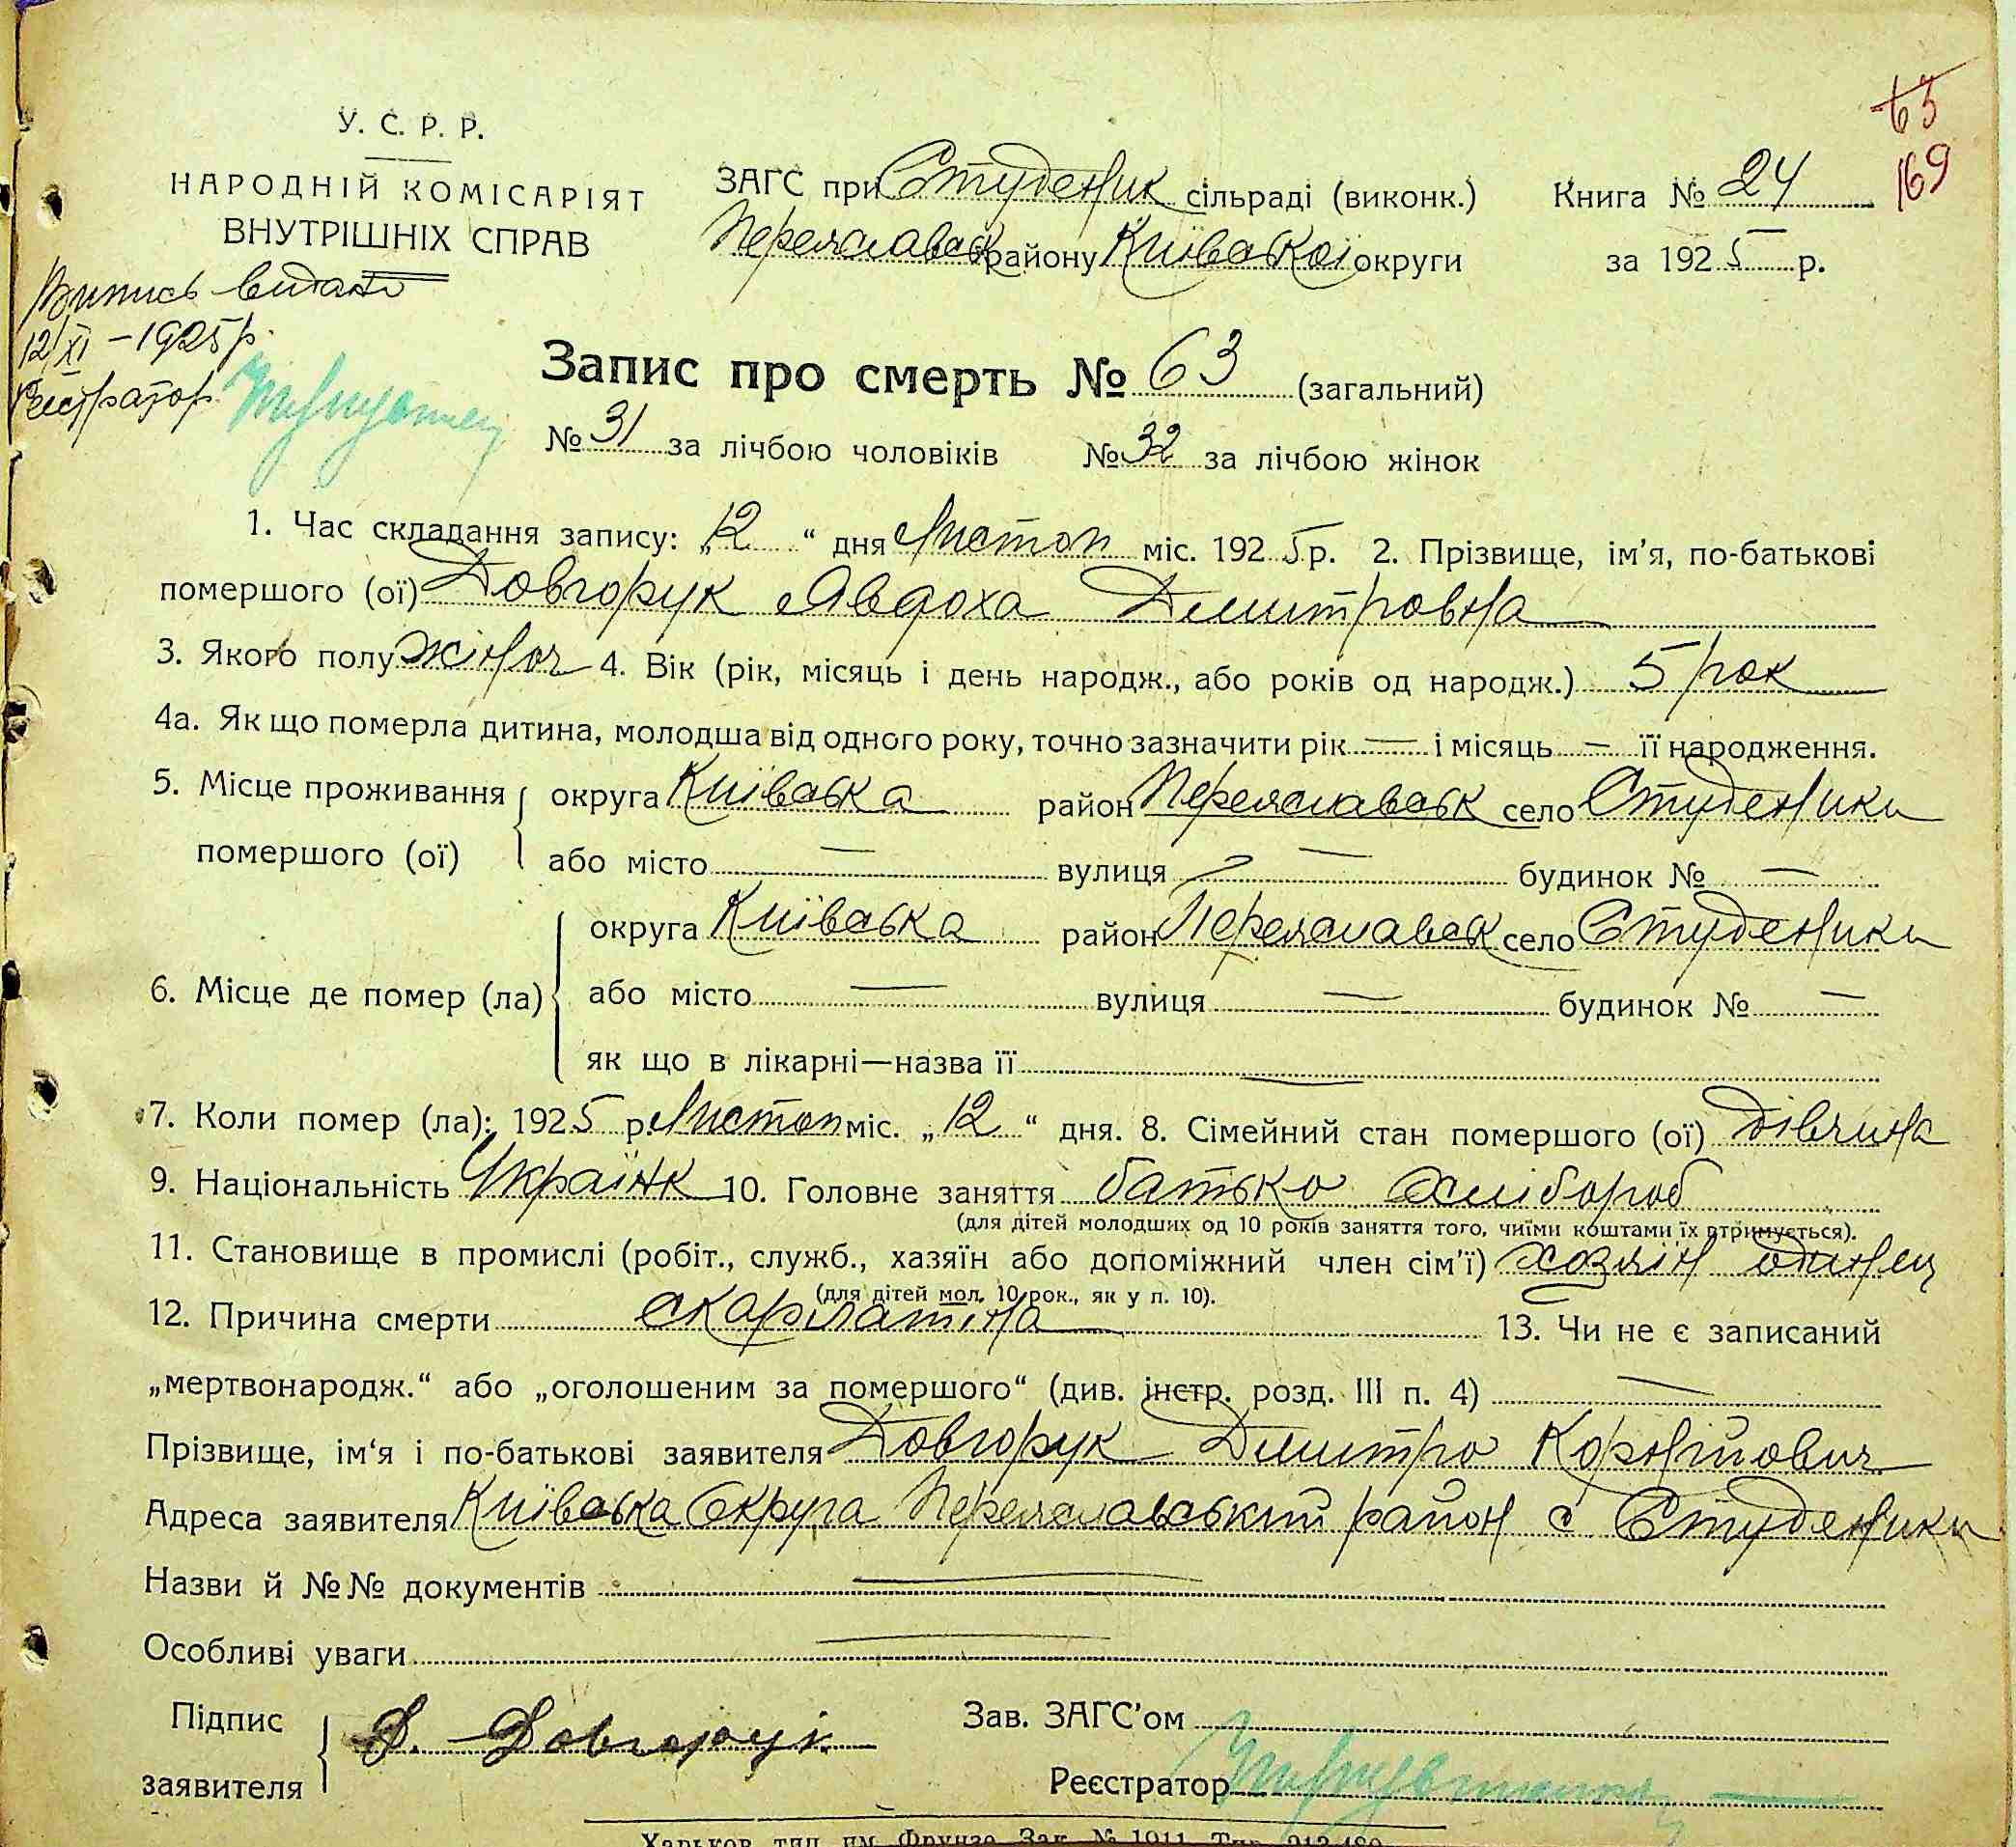 63
169
У. С. Р. Р.
НАРОДНІЙ КОМІСАРІЯТ
ВНУТРІШНІХ СПРАВ
ЗАГС при Студеник сільраді (виконк.) Книга № 24
Переяславськ району Київської округи за 1925 р.
Випись видано
12/XI – 1925 р.
Реєстратор
Запис про смерть № 63 (загальний)
№ 31 за лічбою чоловіків № 32 за лічбою жінок
1. Час складання запису: „12“ дня Листоп міс. 1925 р. 2. Прізвище, ім’я, по-батькові
помершого (ої) Довгорук Явдоха Димитровна
3. Якого полу жіноч 4. Вік (рік, місяць і день народж., або років од народж.) 5 рок
4а. Як що померла дитина, молодша від одного року, точно зазначити рік — і місяць — її народження.
5. Місце проживання округа Київська район Переяславськ село Студеники
помершого (ої) або місто — вулиця — будинок № —
округа Київська район Переяславськ село Студеники
6. Місце де помер (ла) або місто — вулиця — будинок № —
як що в лікарні—назва її —
7. Коли помер (ла): 1925 р. Листоп міс. „12“ дня. 8. Сімейний стан помершого (ої) дівчина
9. Національність Україїнк 10. Головне заняття батько хлібороб
(для дітей молодших од 10 років заняття того, чиїми коштами їх втримується).
11. Становище в промислі (робіт., служб., хазяїн або допоміжний член сім’ї) хозяїн одинец
(для дітей мол. 10 рок., як у п. 10).
12. Причина смерти скарлатина 13. Чи не є записаний
„мертвонародж.“ або „оголошеним за помершого“ (див. інстр. розд. III п. 4) —
Прізвище, ім‘я і по-батькові заявителя Довгорук Димитро Корнійович
Адреса заявителя Київська Округа Переяславський район с Студеники
Назви й №№ документів —
Особливі уваги —
Підпис Д. Довгорук Зав. ЗАГС’ом
заявителя Реєстратор
Харьков, тип. им. Фрунзе. Зак. № 1911. Тир. 213.480.